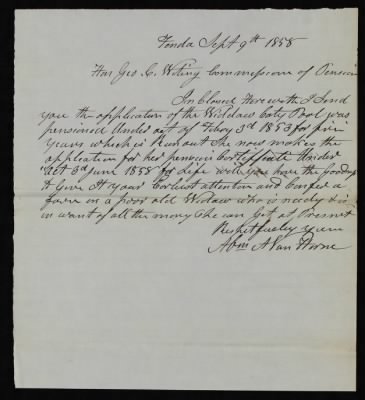 Fonda Sept 9th 1858
Hon Geo C. Whiting Commission of Pension
Inclosed Herewith I Send
you the application of the Widdow Caty Pool was
pensioned under act of Febuy 3d 1853 for five
years which is Run out She now makes the
application for her pension Certificate under
act 3d June 1858 for Life will you have the goodness
to Give it your Earliest attention and Confer a
favor on a poor old Widow who is needy & is
in want of all the money She can get at Present
Respectfuley yours
Abm A Van Horne